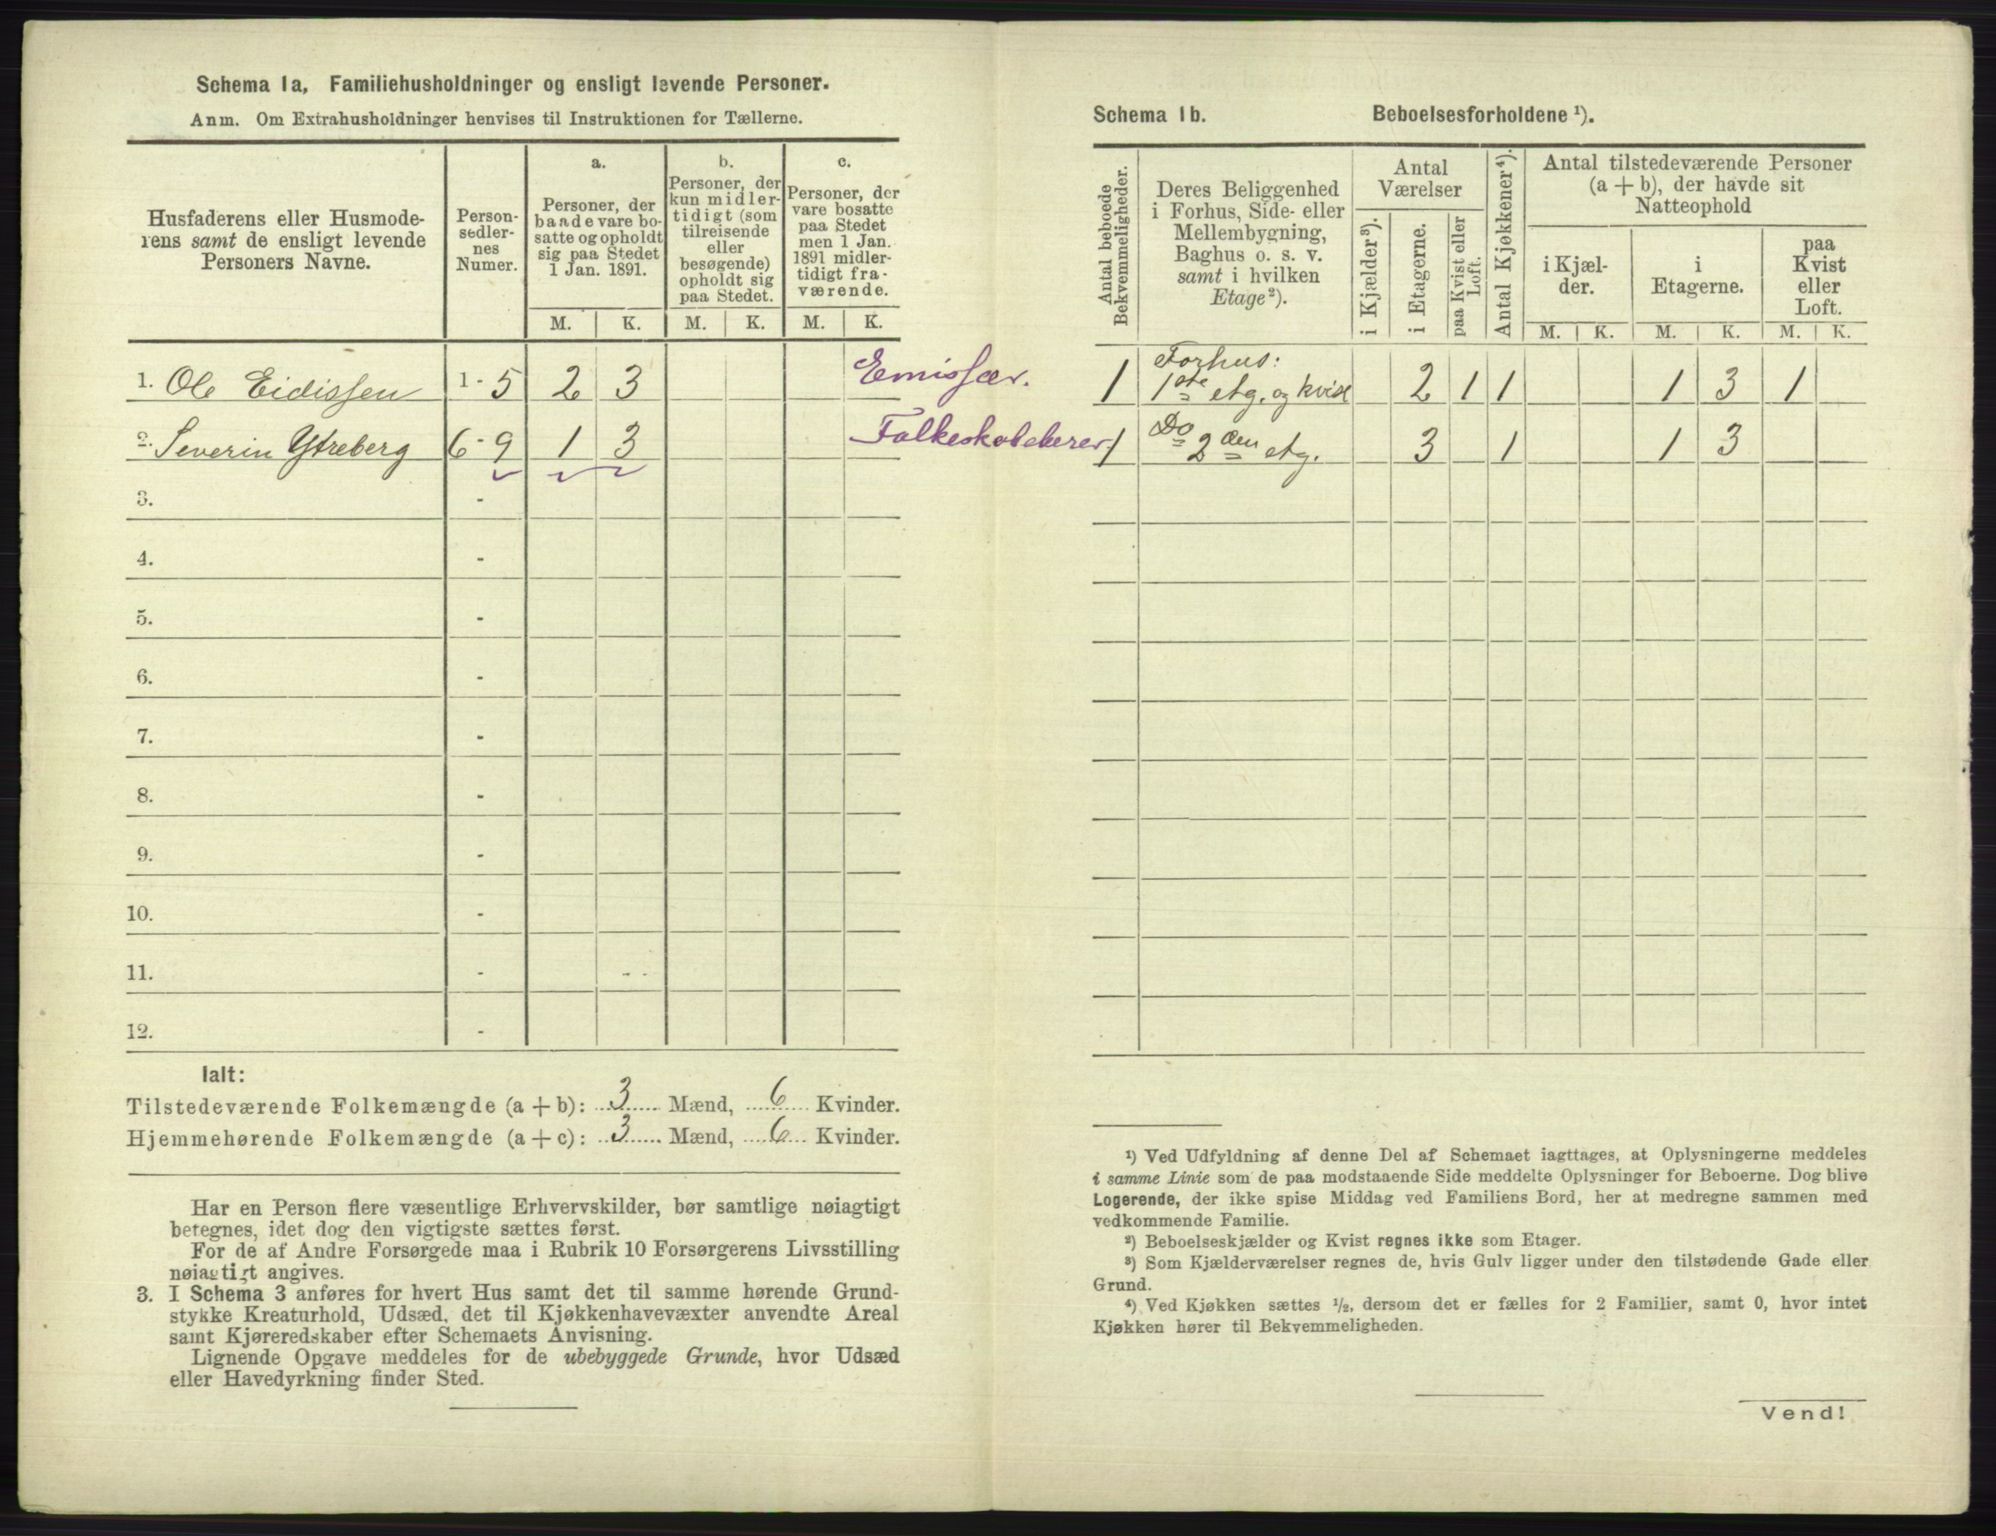 Schema 1a, Familiehusholdninger og ensligt levende Personer.
Anm. Om Extrahusholdninger henvises til Instruktionen for Tællerne.
Husfaderens eller Husmode-
rens samt de ensligt levende
Personers Navne.
Person-
sedler-
nes
Numer.
a.
Personer, der
baade vare bo-
satte og opholdt
sig paa Stedet
1 Jan. 1891.
M. K.
b.
Personer, der
kun midler-
tidigt (som
tilreisende
eller
besøgende)
opholdt sig
paa Stedet.
M. K.
c.
Personer, der
vare bosatte
paa Stedet
men 1 Jan.
1891 midler-
tidigt fra-
værende.
M. K.
1. Ole Eidissen 1 - 5 2 3 Emissær.
2. Severin Ytreberg 6 - 9 1 3 Folkeskolelærer
3. -
4. -
5. -
6. -
7. -
8. -
9. -
10. -
11. -
12. -
Ialt:
Tilstedeværende Folkemængde (a + b): 3 Mænd, 6 Kvinder.
Hjemmehørende Folkemængde (a + c): 3 Mænd, 6 Kvinder.
Har en Person flere væsentlige Erhvervskilder, bør samtlige nøiagtigt
betegnes, idet dog den vigtigste sættes først.
For de af Andre Forsørgede maa i Rubrik 10 Forsørgerens Livsstilling
nøiagtigt angives.
3. I Schema 3 anføres for hvert Hus samt det til samme hørende Grund-
stykke Kreaturhold, Udsæd, det til Kjøkkenhavevæxter anvendte Areal
samt Kjøreredskaber efter Schemaets Anvisning.
Lignende Opgave meddeles for de ubebyggede Grunde, hvor Udsæd
eller Havedyrkning finder Sted.
Schema 1b. Beboelsesforholdene ¹).
Antal beboede
Bekvemmeligheder.
Deres Beliggenhed
i Forhus, Side- eller
Mellembygning,
Baghus o. s. v.
samt i hvilken
Etage ²).
Antal
Værelser
i Kjælder ³).
i Etagerne.
paa Kvist eller
Loft.
Antal Kjøkkener ⁴).
Antal tilstedeværende Personer
(a + b), der havde sit
Natteophold
i Kjæl-
der.
M. K.
i
Etagerne.
M. K.
paa
Kvist
eller
Loft.
M. K.
1 Forhus:
1ste etg. og kvist 2 1 1 1 3 1
1 Do 2den etg. 3 1 1 3
¹) Ved Udfyldning af denne Del af Schemaet iagttages, at Oplysningerne meddeles
i samme Linie som de paa modstaaende Side meddelte Oplysninger for Beboerne. Dog blive
Logerende, der ikke spise Middag ved Familiens Bord, her at medregne sammen med
vedkommende Familie.
²) Beboelseskjælder og Kvist regnes ikke som Etager.
³) Som Kjælderværelser regnes de, hvis Gulv ligger under den tilstødende Gade eller
Grund.
⁴) Ved Kjøkken sættes ½, dersom det er fælles for 2 Familier, samt 0, hvor intet
Kjøkken hører til Bekvemmeligheden.
Vend!